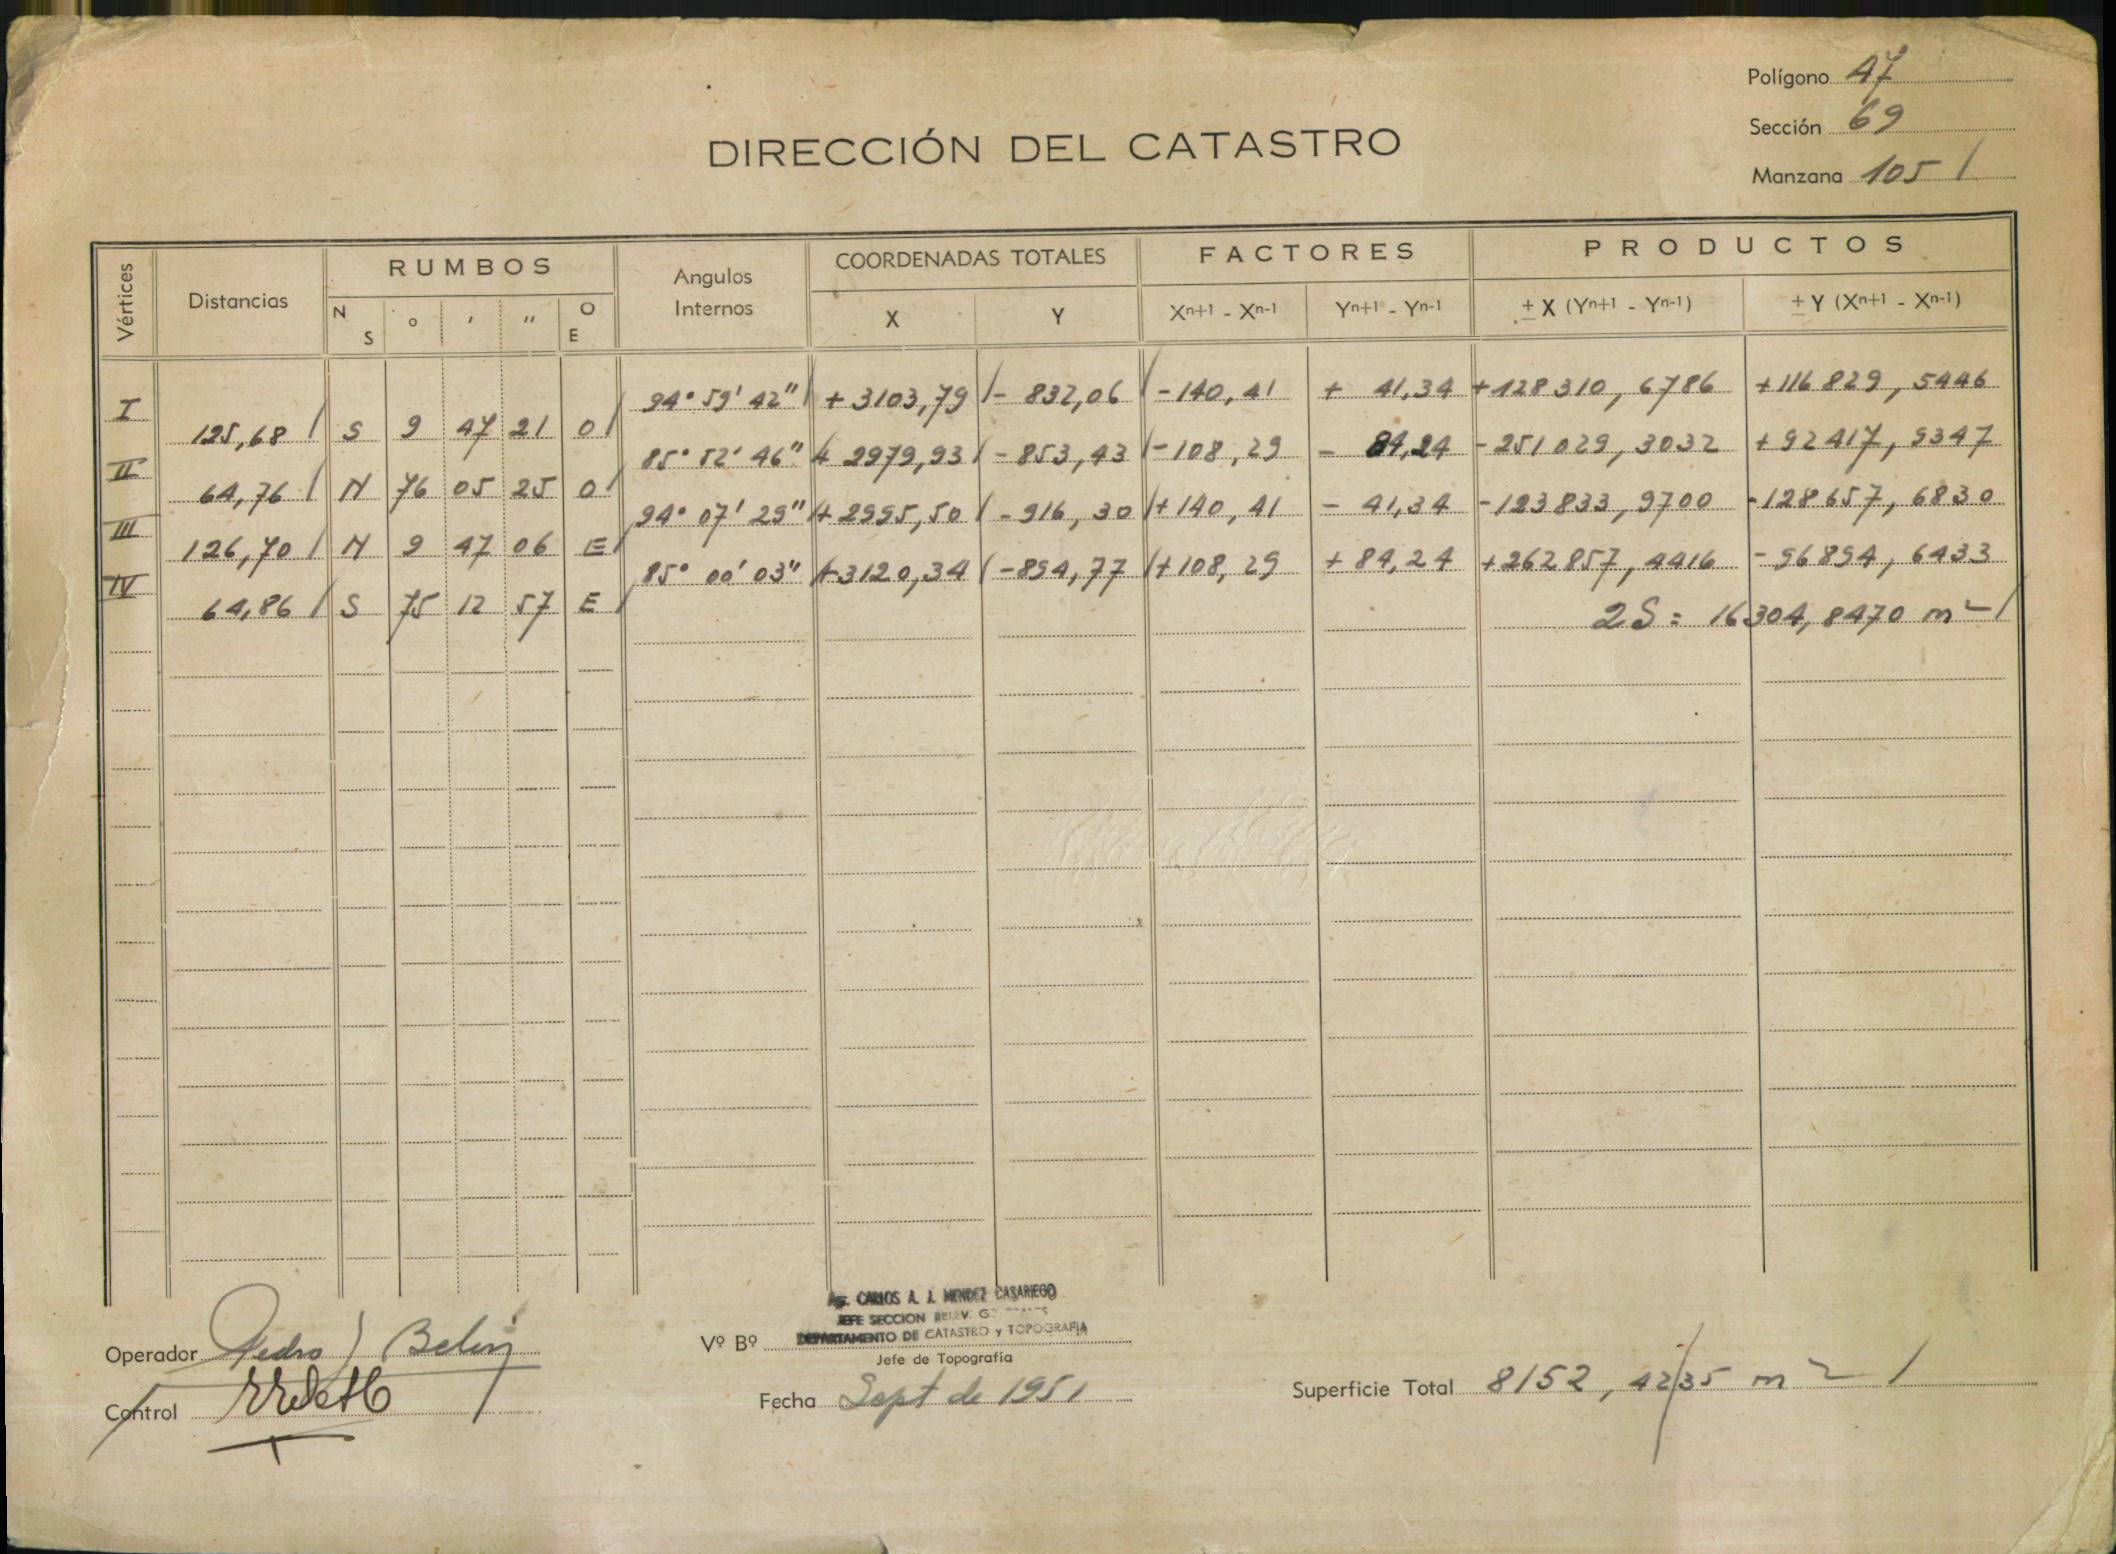 Polígono 47
Sección 69
Manzana 105 /
DIRECCIÓN DEL CATASTRO
Vértices Distancias RUMBOS Angulos Internos COORDENADAS TOTALES FACTORES PRODUCTOS
N S ° ′ ″ O E X Y Xn+1 - Xn-1 Yn+1 - Yn-1 ± X (Yn+1 - Yn-1) ± Y (Xn+1 - Xn-1)
I 94° 59' 42" / + 3103,79 / - 832,06 / - 140,41 + 41,34 + 128310,6786 + 116829,5446
125,68 / S 9 47 21 O /
II 85° 52' 46" + 2979,93 / - 853,43 / - 108,29 - 84,24 - 251029,3032 + 92417,9347
64,76 / N 76 05 25 O /
III 94° 07' 29" + 2995,50 / - 916,30 / + 140,41 - 41,34 - 123833,9700 - 128657,6830
126,70 / N 9 47 06 E /
IV 85° 00' 03" / + 3120,34 / - 894,77 / + 108,29 + 84,24 + 262857,4416 - 96894,6433
64,86 / S 75 12 57 E /
2S = 16304,8470 m² /
Ag. CARLOS A. J. MENDEZ CASARIEGO
JEFE SECCION RELEV.
DEPARTAMENTO DE CATASTRO y TOPOGRAFIA
Operador Pedro J Belin
Vº Bº
Jefe de Topografía
Control
Fecha Sept de 1951
Superficie Total 8152,42/35 m² /